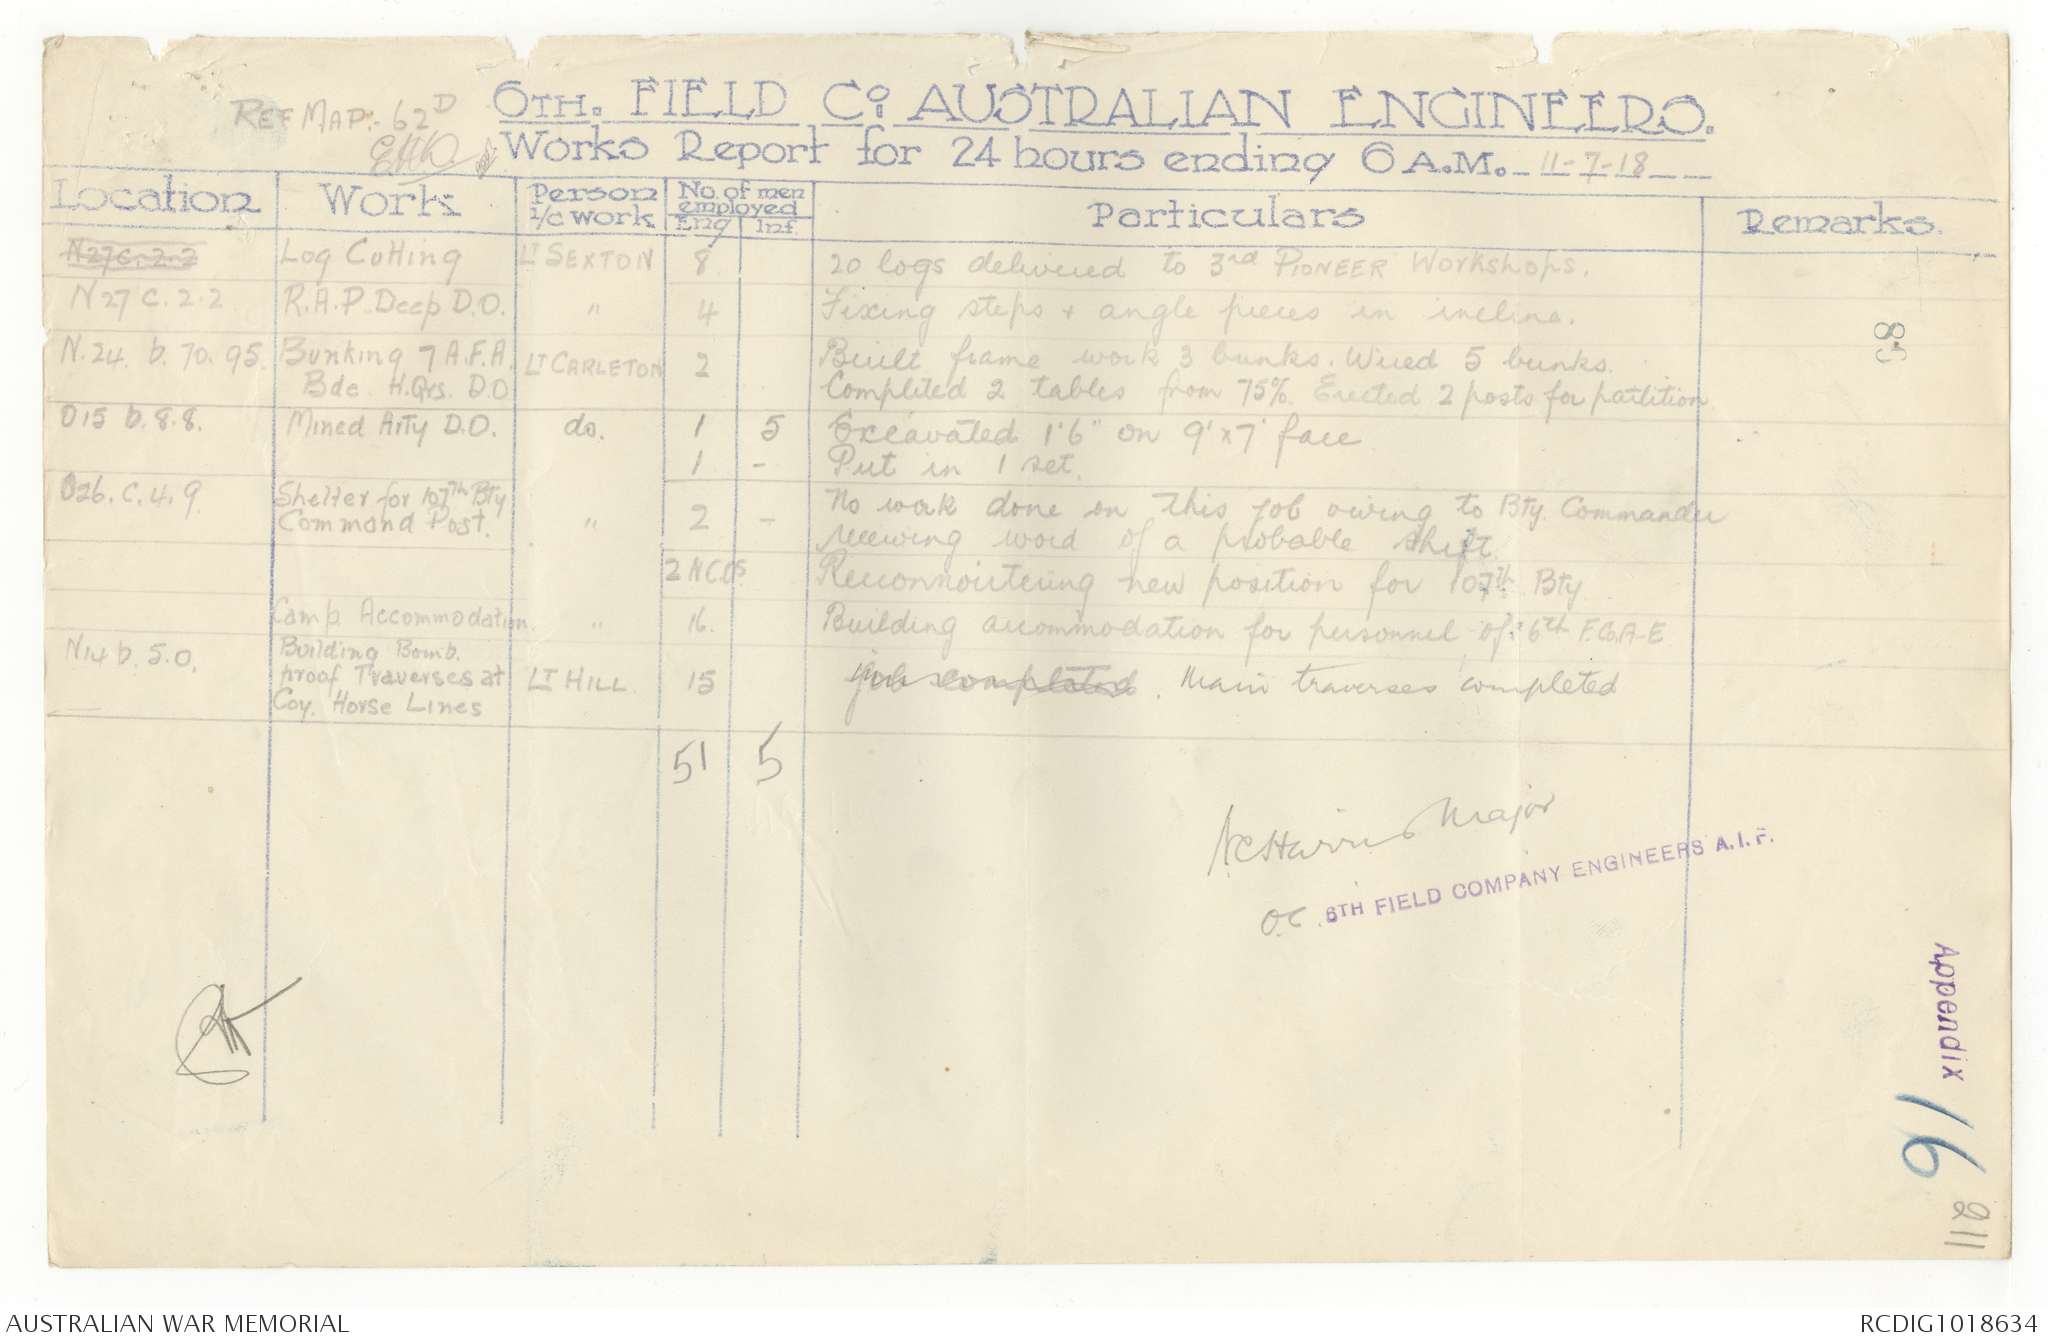 REF MAP:- 62D
6TH. FIELD Co AUSTRALIAN ENGINEERS.
Works Report for 24 hours ending 6 A.M. 11-7-18
Location Work Person i/c work No. of men employed Eng Inf Particulars Remarks.
N27c.2.2 Log Cutting LT SEXTON 8 20 logs delivered to 3rd PIONEER Workshops.
N27 c.2.2 R.A.P. Deep D.O. " 4 Fixing steps + angle pieces in incline.
N.24. b. 70.95. Bunking 7 A.F.A. LT CARLETON 2 Built frame work 3 bunks. Wired 5 bunks.
Bde. H.Qrs. D.O Completed 2 tables from 75%. Erected 2 posts for partition
O15 b.8.8. Mined Arty D.O. do. 1 5 Excavated 1'6" on 9'x7' face
1 - Put in 1 set.
O26.c.4.9. Shelter for 107th Bty Command Post. " 2 - No work done on this job owing to Bty. Commander
receiving word of a probable shift.
2 NCOs Reconnoistering new position for 107th Bty
Camp Accommodation. " 16. Building accommodation for personnel of 6th F.Co.A-E
N14 b.5.0. Building Bomb.
proof Traverses at LT HILL 15 job completed. Main traverses completed
Coy. Horse Lines
51 5
Major
OC. 6TH FIELD COMPANY ENGINEERS A.I.F.
Appendix 16
211
AUSTRALIAN WAR MEMORIAL
RCDIG1018634